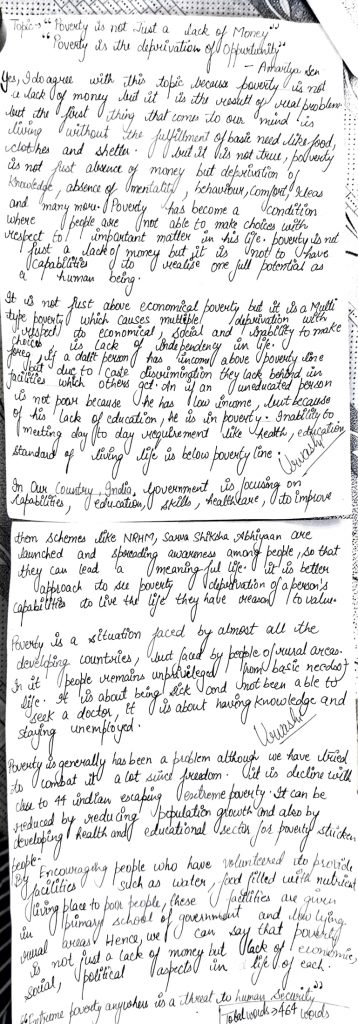 Topic → "Poverty is not Just a lack of Money"
"Poverty is the deprivation of Oppurtunity"
- Amartya Sen
Yes, I do agree with this topic because poverty is not
a lack of money but it is the result of real problem
but the first thing that comes to our mind is
living without the fulfillment of basic need like food,
clothes and shelter. but it is not true, poverty
is not just absence of money but deprivation of
Knowledge, absence of mentality, behaviour, comfort, Ideas
and many more. Poverty has become a condition
where people are not able to make choices with
respect to important matter in his life. poverty is not
just a lack of money but it is not to have
capabilities to realise one full potential as
a human being.
It is not just above economical poverty but it is a Multi
type poverty which causes multiple deprivation with
respect to economical, social and Inability to make
choices is lack of Independency in life.
for eg, if a dalit person has income above poverty line
but due to caste discrimination they lack behind in
facilities which others get. An if an uneducated person
is not poor because he has low income, but because
of his lack of education, he is in poverty. Inability to
meeting day to day requirement like health, education
standard of living life is below poverty line.
Urvashi
In Our Country, India, Government is focusing on
capabilities, education, skills, healthcare, to improve
them schemes like NRHM, Sarva Shiksha Abhiyaan are
launched and spreading awareness among people, so that
they can lead a meaningful life. it is better
approach to see poverty deprivation of a person's
capabilities to live the life they have reason to value.
Poverty is a situation faced by almost all the
developing countries, but faced by people of rural areas.
In it people remains unprivileged from basic needs of
life. It is about being sick and not been able to
seek a doctor, It is about having knowledge and
staying unemployed.
Urvashi
Poverty is generally has been a problem although we have tried
to combat it a lot since freedom. it is decline with
close to 44 indian escaping extreme poverty. It can be
reduced by reducing population growth and also by
developing health and educational sector for poverty stricken
people.
By Encouraging people who have volunteered to provide
facilities such as water, food filled with nutrient
living place to poor people, these facilities are given
in primary school of government and low lying
rural areas. Hence, we can say that poverty
is not just a lack of money but lack of economic,
social, political aspects in life of each.
"Extreme poverty anywhere is a threat to human security"
Total words → 464 words